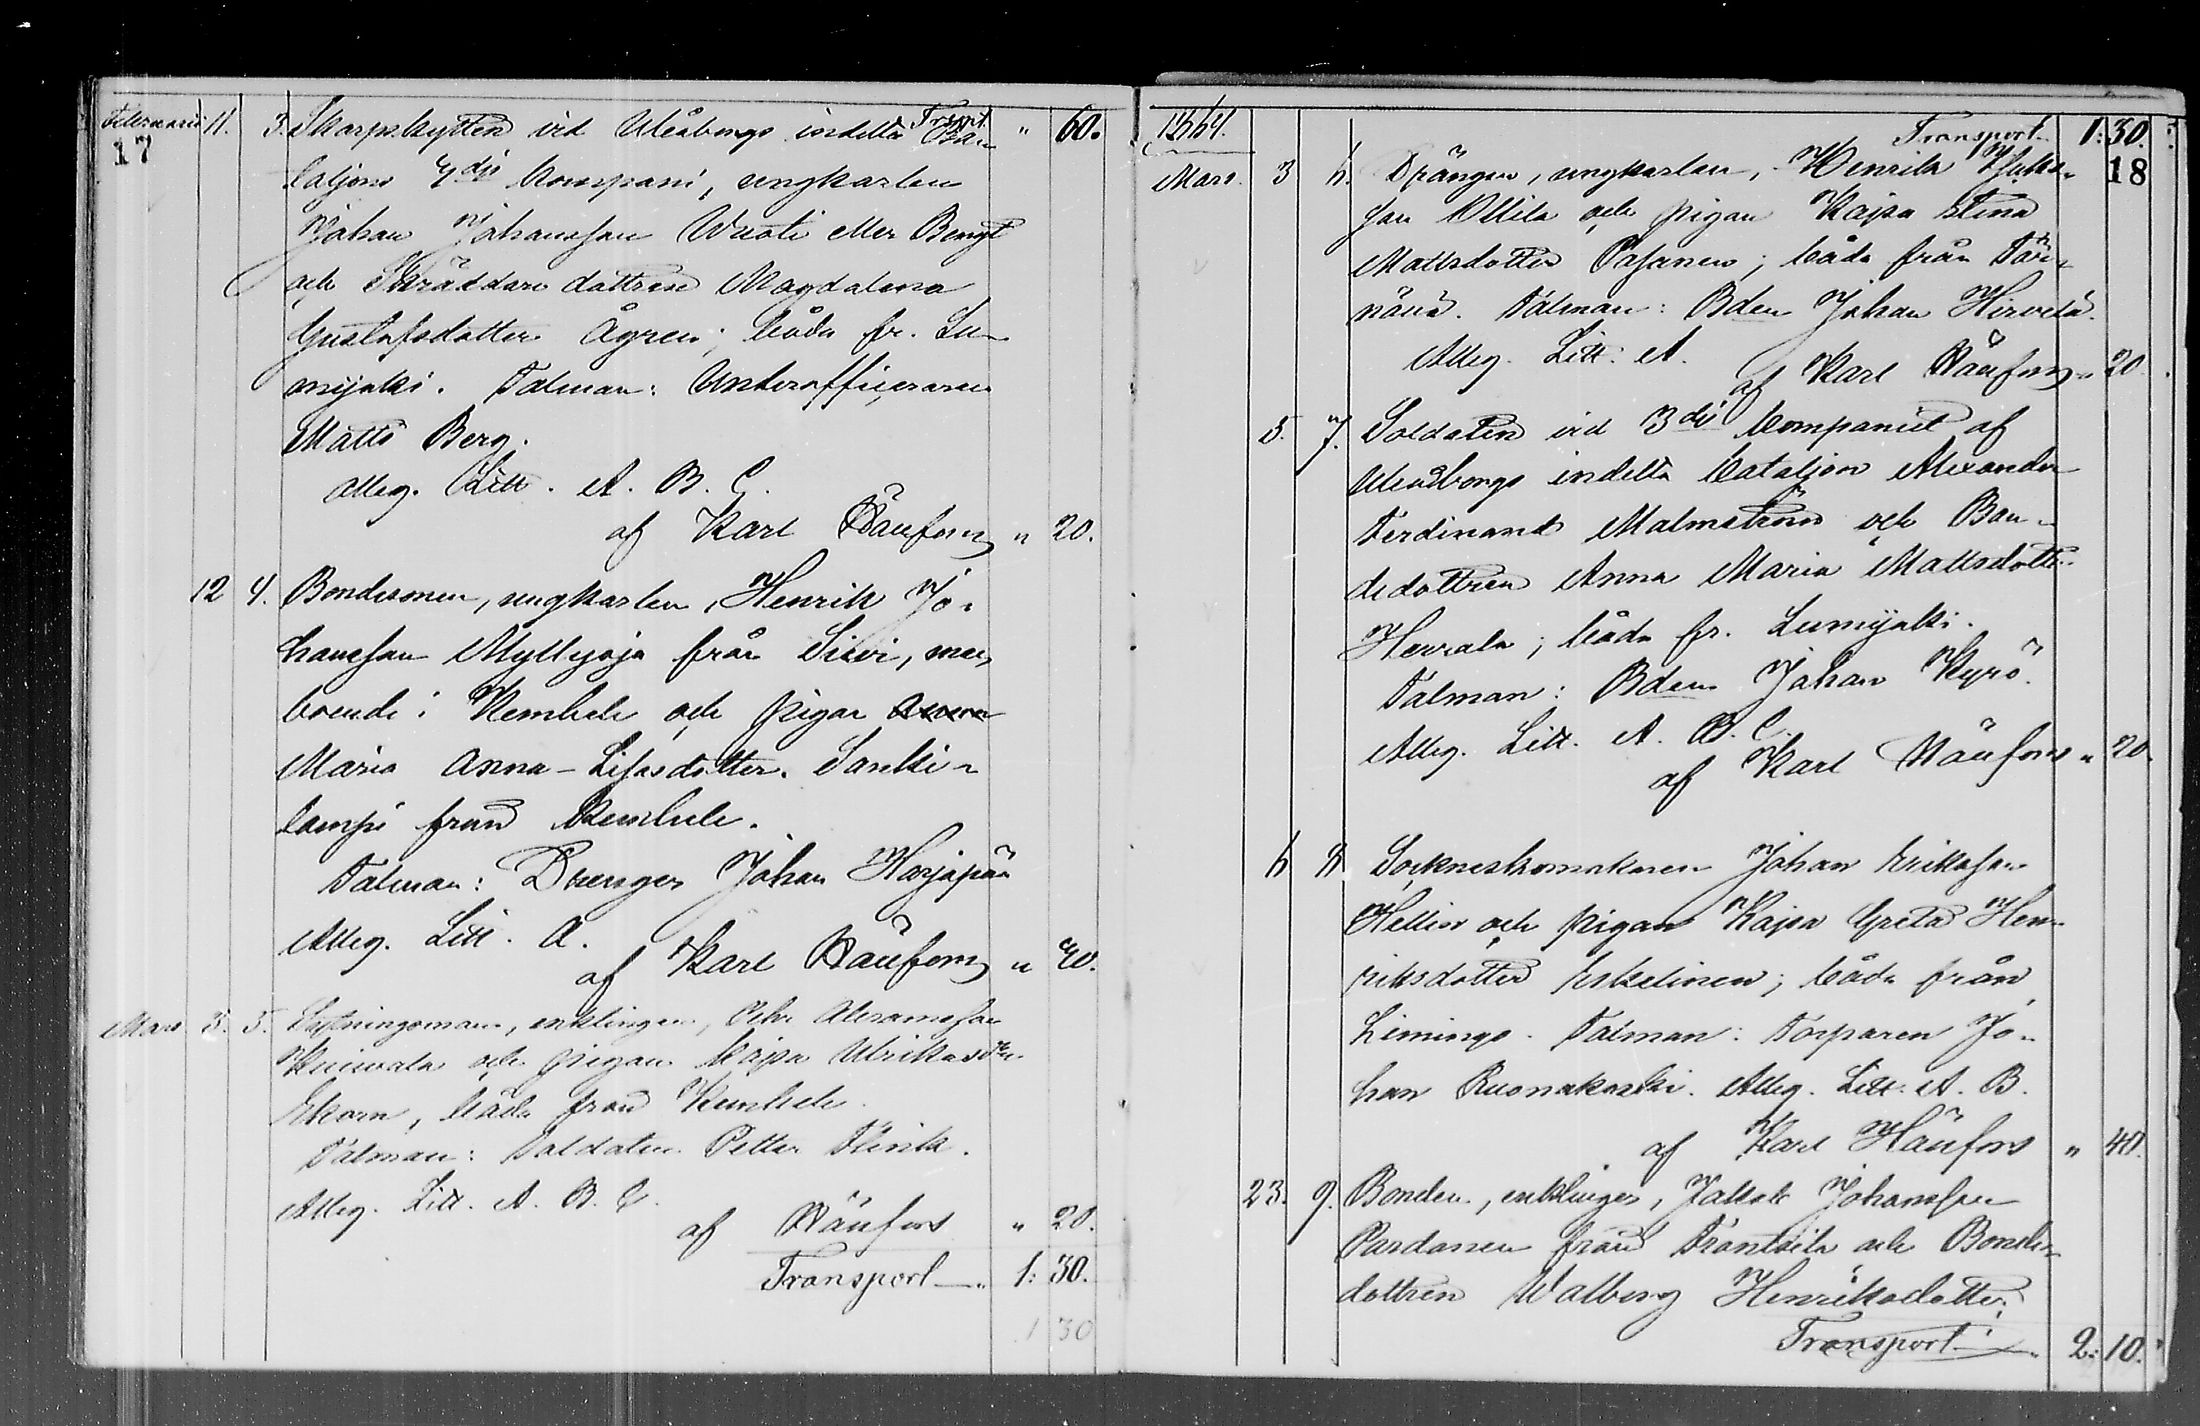 Februarii 11. 3. Skarpskytten vid Uleåborgs indelta Ba- Trspt. " 60.
17
taljons 4dje Kompani, ungkarlen
Johan Johansson Wuoti eller Bengt
och Skräddare dottren Magdalena
Gustafsdotter Ågren; båda fr. Lu-
mijoki. Talman: Underofficeraren
Matts Berg.
Alleg. Litt. A. B. C.
af Karl " 20.
12 4. Bondesonen, ungkarlen, Henrik Jo-
hansson Myllyoja från Sievi, men
boende i Kempele och pigan Anna
Maria Anna-Lisasdotter Sanki-
lampi från Kempele.
Talman: Drengen Johan Harjapää
Alleg. Litt. A.
af Karl " 40.
Mars 3. 5. Sytningsman, enklingen, Abramsson
och pigan Kajsa Ulrikasdtr
Ekorn, båda från Kempele.
Talman: Soldaten Petter Flink.
Alleg. Litt. A. B. C.
af " 20.
Transport " 1: 30.
1 30
1864. Transport 1: 30.
18
Mars. 3 6. Drängen, ungkarlen, Henrik
son Ollila och pigan Kajsa Stina
Mattsdotter Pasanen; båda från Tör-
nävä. Talman: Bden Johan Hirvelä.
Alleg. Litt. A.
af Karl " 20.
5. 7. Soldaten vid 3dje Kompaniet af
Uleåborgs indelta bataljon Alexander
Ferdinand Malmström och Bon-
dedottren Anna Maria Mattsdotter
Herrala; båda fr. Lumijoki.
Talman: Bden Johan Kyrö.
Alleg. Litt. A. B. C.
af Karl " 20.
6 8 Sockneskomakaren Johan Eriksson
Hellin och pigan Kajsa Greta Hen-
riksdotter Eskelinen; båda från
Limingo. Talman: Torparen Jo-
han Ruonakoski. Alleg. Litt. A. B.
af Karl " 40.
23. 9. Bonden, enklingen, Jakob Johansson
Pardanen från Frantsila och Bonde-
dottren Walborg Henriksdotter
Transport " 2: 10.